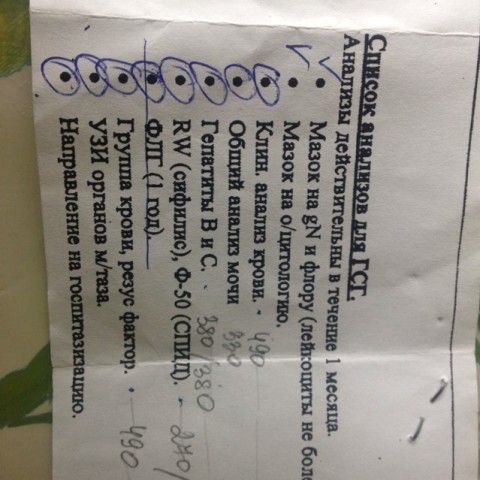 Список анализов для ГСГ.
Анализы действительны в течение 1 месяца.
Мазок на gN и флору (лейкоциты не боле
Мазок на о/цитологию.
Клин. анализ крови. 490
Общий анализ мочи 320
Гепатиты В и С. 380/380
RW (сифилис), Ф-50 (СПИД). 270/
ФЛГ (1 год).
Группа крови, резус фактор. 490
УЗИ органов м/таза.
Направление на госпитазизацию.